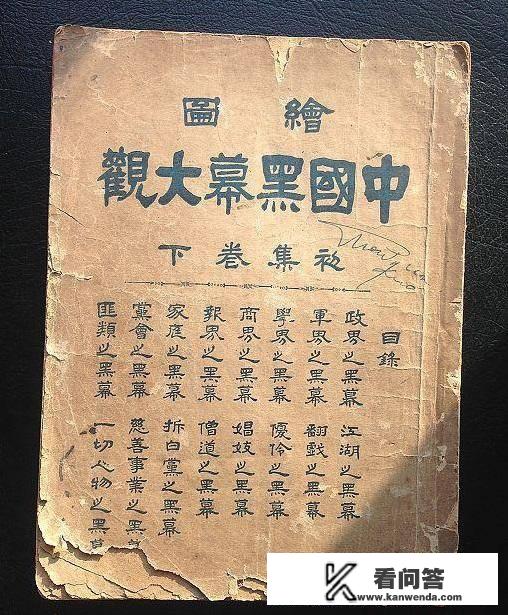 繪圖
中國黑幕大觀
初集卷下
目錄
政界之黑幕 江湖之黑幕
軍界之黑幕 翻戲之黑幕
學界之黑幕 優伶之黑幕
商界之黑幕 娼妓之黑幕
報界之黑幕 僧道之黑幕
家庭之黑幕 拆白黨之黑幕
黨會之黑幕 慈善事業之黑幕
匪類之黑幕 一切人物之黑幕
看问答
www.kanwenda.com